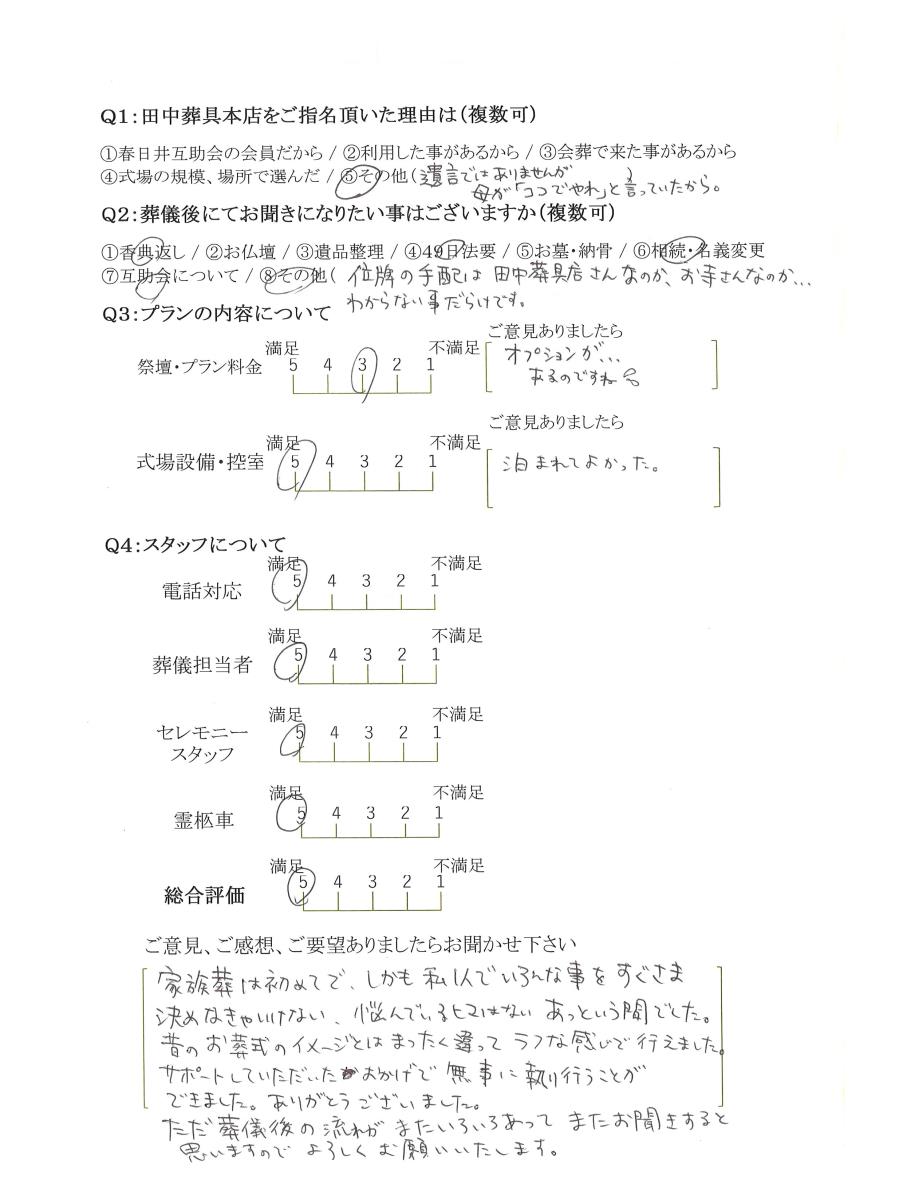 Q1:田中葬具本店をご指名頂いた理由は(複数可)
①春日井互助会の会員だから / ②利用した事があるから / ③会葬で来た事があるから
④式場の規模、場所で選んだ / ⑤その他(遺言ではありませんが
母が「ココでやれ」と言っていたから。
Q2:葬儀後にてお聞きになりたい事はございますか(複数可)
①香典返し / ②お仏壇 / ③遺品整理 / ④49日法要 / ⑤お墓・納骨 / ⑥相続・名義変更
⑦互助会について / ⑧その他( 位牌の手配は 田中葬具店さんなのか、お寺さんなのか...
わからない事だらけです。
Q3:プランの内容について
ご意見ありましたら
満足 不満足
祭壇・プラン料金 5 4 3 2 1
オプションが...
あるのですね
ご意見ありましたら
満足 不満足
式場設備・控室 5 4 3 2 1
泊まれてよかった。
Q4:スタッフについて
満足 不満足
電話対応 5 4 3 2 1
満足 不満足
葬儀担当者 5 4 3 2 1
満足 不満足
セレモニー 5 4 3 2 1
スタッフ
満足 不満足
霊柩車 5 4 3 2 1
満足 不満足
総合評価 5 4 3 2 1
ご意見、ご感想、ご要望ありましたらお聞かせ下さい
家族葬は初めてで、しかも私1人でいろんな事をすぐさま
決めなきゃいけない、悩んでいるヒマはない あっという間でした。
昔のお葬式のイメージとはまったく違って ラフな感じで行えました。
サポートしていただいたおかげで 無事に執り行うことが
できました。ありがとうございました。
ただ 葬儀後の流れが またいろいろあって またお聞きすると
思いますので よろしくお願いいたします。